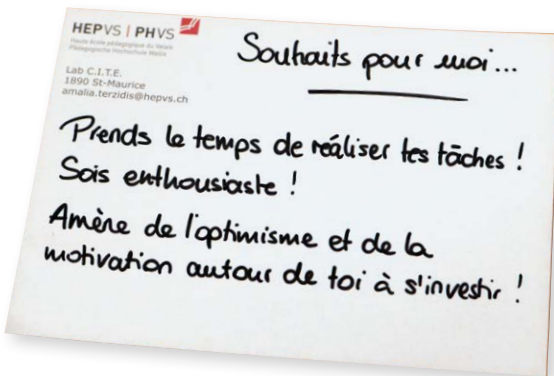 HEPVS | PHVS
Haute école pédagogique du Valais
Pädagogische Hochschule Wallis
Lab C.I.T.E.
1890 St-Maurice
amalia.terzidis@hepvs.ch
Souhaits pour moi...
Prends le temps de réaliser tes tâches !
Sois enthousiaste !
Amène de l'optimisme et de la
motivation autour de toi à s'investir !